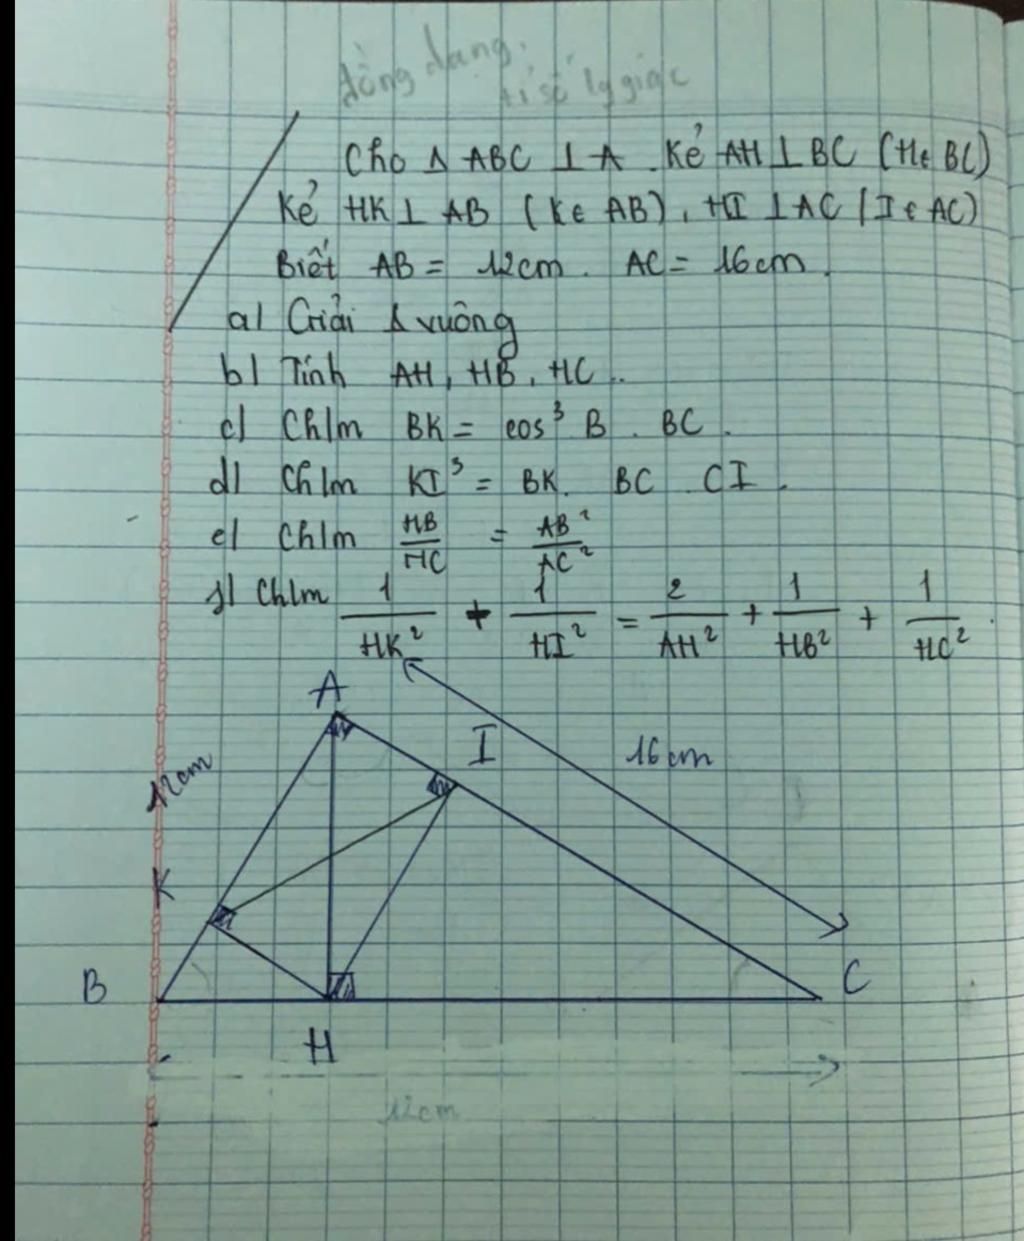 đồng dạng.
tỉ số lg giác
Cho Δ ABC ⊥ A. Kẻ AH ⊥ BC (H∈ BC)
Kẻ HK ⊥ AB (K∈ AB), HI ⊥ AC (I ∈ AC)
Biết AB = 12cm. AC = 16cm.
a) Giải Δ vuông
b) Tính AH, HB, HC..
c) Ch/m BK = cos³ B . BC.
d) Ch/m KI³ = BK. BC CI.
e) Ch/m HB/HC = AB²/AC²
f) Ch/m 1/HK² + 1/HI² = 2/AH² + 1/HB² + 1/HC².
A
I
16cm
12cm
K
B
C
H
12cm